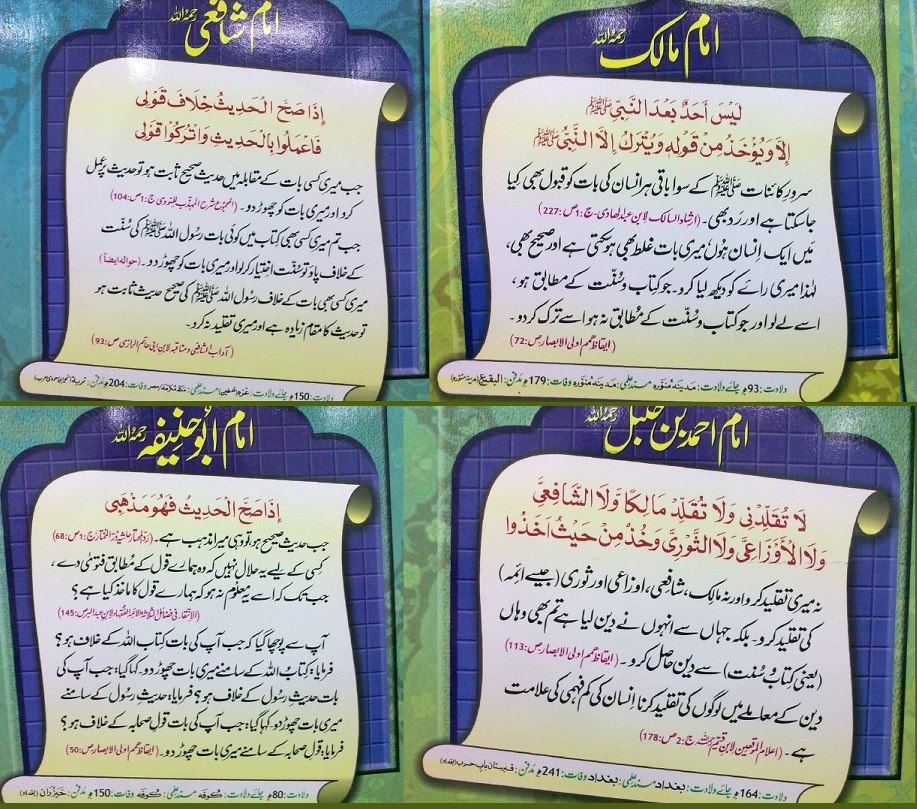 امام مالک رحمہ اللہ
لَیْسَ اَحَدٌ بَعْدَ النَّبِیِّ ﷺ
اِلَّا وَیُؤْخَذُ مِنْ قَوْلِهٖ وَیُتْرَكُ اِلَّا النَّبِیُّ ﷺ
سرورِ کائنات ﷺ کے سوا باقی ہر انسان کی بات کو قبول بھی کیا
جاسکتا ہے اور رد بھی۔ (ارشاد السالک لابن عبدالھادی، ج:1ص:227)
میں ایک انسان ہوں میری بات غلط بھی ہوسکتی ہے اور صحیح بھی،
لہٰذا میری رائے کو دیکھ لیا کرو۔ جو کتاب و سنت کے مطابق ہو،
اسے لے لو اور جو کتاب و سنت کے مطابق نہ ہو اسے ترک کر دو۔
(ایقاظ ھمم اولی الابصار ص:72)
ولادت:93ھ جائے ولادت: مدینہ منورہ مسندِ علمی: مدینہ منورہ وفات:179ھ مدفن: البقیع (مدینہ منورہ)
امام شافعی رحمہ اللہ
اِذَا صَحَّ الْحَدِیْثُ خِلَافَ قَوْلِی
فَاعْمَلُوْا بِالْحَدِیْثِ وَاتْرُكُوْا قَوْلِی
جب میری کسی بات کے مقابلہ میں حدیث صحیح ثابت ہو تو حدیث پر عمل
کرو اور میری بات کو چھوڑ دو۔ (المجموع شرح المہذب للنووی ج:1ص:104)
جب تم میری کسی بھی کتاب میں کوئی بات رسول اللہ ﷺ کی سنت
کے خلاف پاؤ تو سنت اختیار کرلو اور میری بات کو چھوڑ دو۔ (حوالہ ایضاً)
میری کسی بھی بات کے خلاف رسول اللہ ﷺ کی صحیح حدیث ثابت ہو
تو حدیث کا مقام زیادہ ہے اور میری تقلید نہ کرو۔
(آداب الشافعی ومناقبہ لابن ابی حاتم الرازی ص:93)
ولادت:150ھ جائے ولادت: غزہ (فلسطین) مسندِ علمی: مکہ مکرمہ، مصر وفات:204ھ مدفن:
امام احمد بن حنبل رحمہ اللہ
لَا تُقَلِّدْنِی وَلَا تُقَلِّدْ مَالِكًا وَّلَا الشَّافِعِیَّ
وَلَا الْاَوْزَاعِیَّ وَلَا الثَّوْرِیَّ وَخُذْ مِنْ حَیْثُ اَخَذُوْا
نہ میری تقلید کرو اور نہ مالک، شافعی، اوزاعی اور ثوری (جیسے ائمہ)
کی تقلید کرو۔ بلکہ جہاں سے انہوں نے دین لیا ہے تم بھی وہاں
(یعنی کتاب و سنت) سے دین حاصل کرو۔ (ایقاظ ھمم اولی الابصار ص:113)
دین کے معاملے میں لوگوں کی تقلید کرنا انسان کی کم فہمی کی علامت
ہے۔ (اعلام الموقعین لابن قیم رحمہ اللہ ج:2ص:178)
ولادت:164ھ جائے ولادت: بغداد مسندِ علمی: بغداد وفات:241ھ مدفن: قبرستان باب حرب (بغداد)
امام ابو حنیفہ رحمہ اللہ
اِذَا صَحَّ الْحَدِیْثُ فَهُوَ مَذْهَبِی
جب حدیث صحیح ہو، تو وہی میرا مذہب ہے۔ (ردالمحتار حاشیہ درالمختار ج:1ص:68)
کسی کے لیے یہ حلال نہیں کہ وہ ہمارے قول کے مطابق فتویٰ دے،
جب تک کہ اسے یہ معلوم نہ ہو کہ ہمارے قول کا ماخذ کیا ہے؟
(الانتقاء فی فضائل الثلاثۃ الائمۃ الفقہاء لابن عبدالبر ص:145)
آپ سے پوچھا گیا کہ جب آپ کی بات کتاب اللہ کے خلاف ہو؟
فرمایا: کتاب اللہ کے سامنے میری بات چھوڑ دو۔ کہا گیا: جب آپ کی
بات حدیثِ رسول کے خلاف ہو؟ فرمایا: حدیثِ رسول کے سامنے
میری بات چھوڑ دو۔ کہا گیا: جب آپ کی بات قولِ صحابہ کے خلاف ہو؟
فرمایا: قولِ صحابہ کے سامنے میری بات چھوڑ دو۔ (ایقاظ ھمم اولی الابصار ص:50)
ولادت:80ھ جائے ولادت: کوفہ مسندِ علمی: کوفہ وفات:150ھ مدفن: خیزران (بغداد)